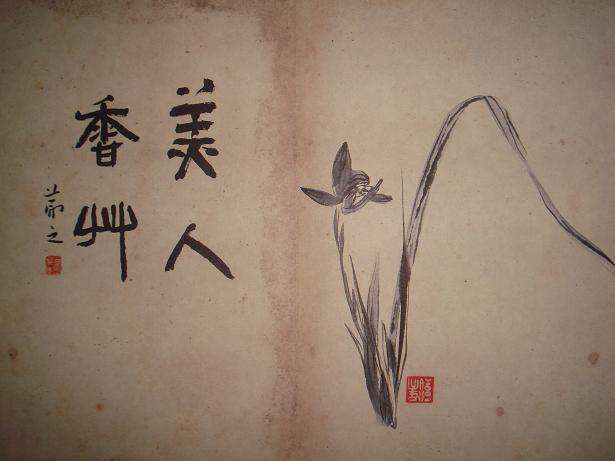 美人
香艸
之